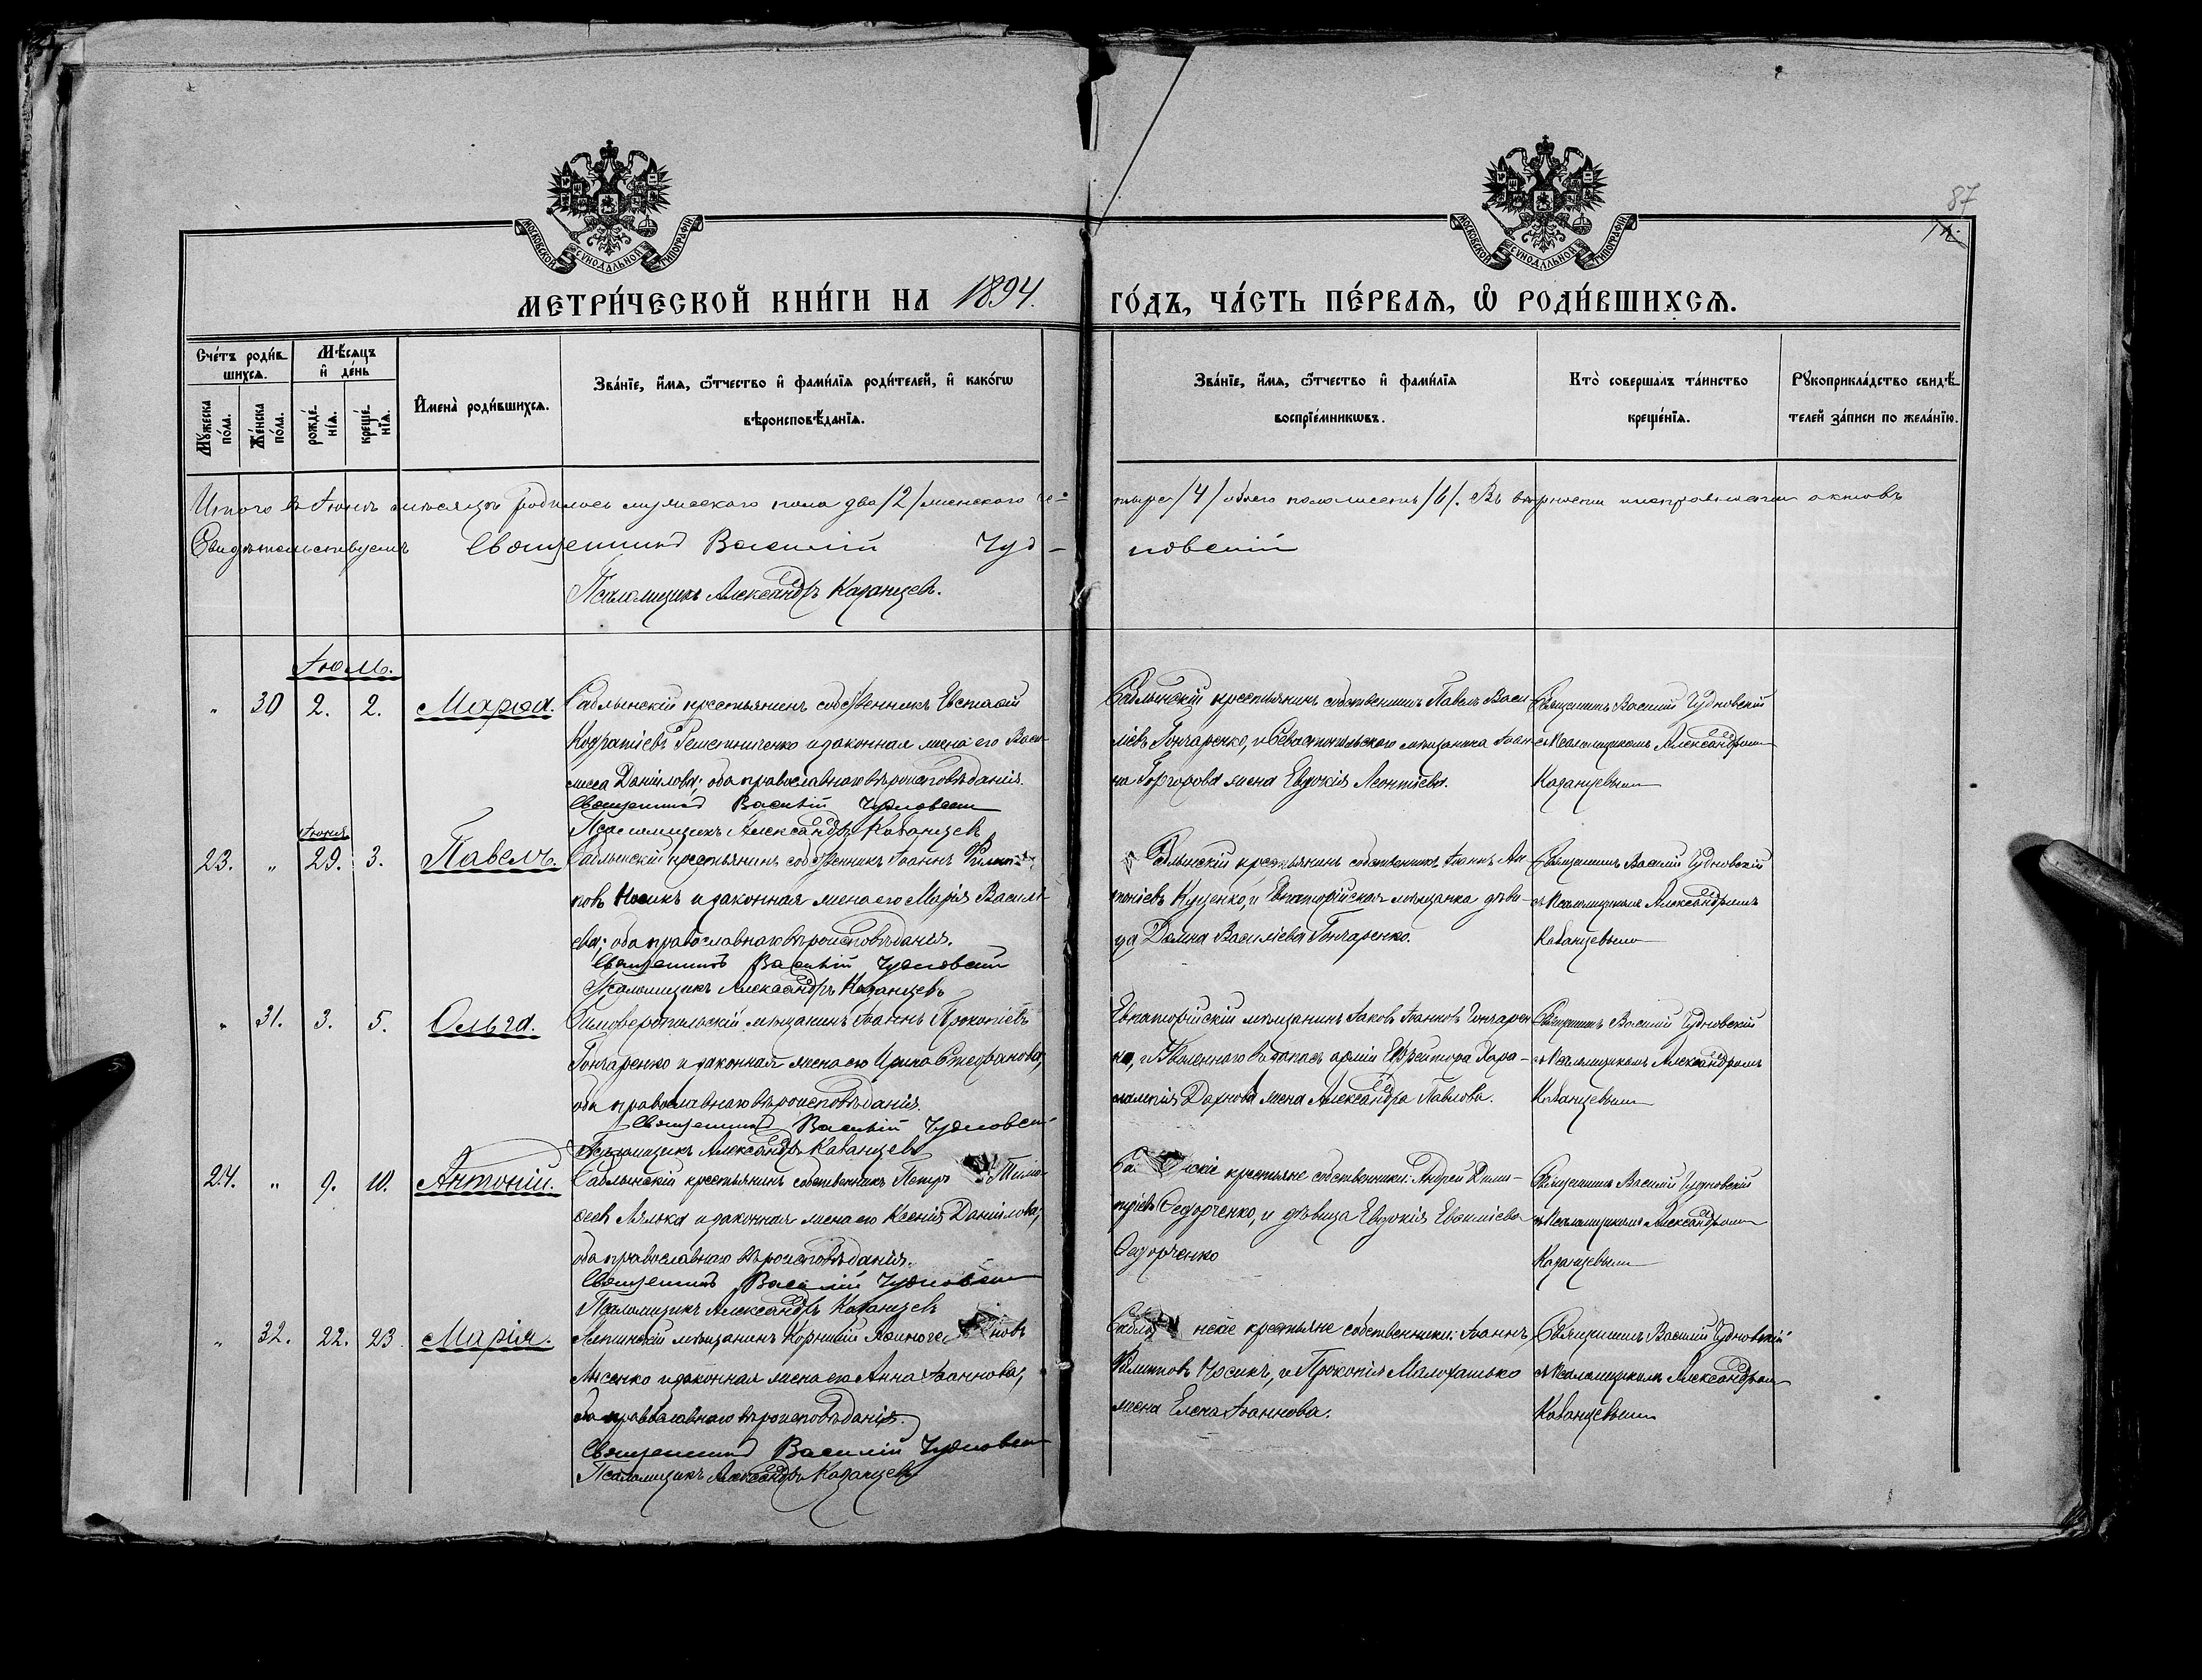 87
МОСКОВСКОЙ СѴНОДАЛЬНОЙ ТИПОГРАФІИ
МОСКОВСКОЙ СѴНОДАЛЬНОЙ ТИПОГРАФІИ
МЕТРИ́ЧЕСКОЙ КНИ́ГИ НА 1894. ГО́ДЪ, ЧА́СТЬ ПЕ́РВАѦ, Ѡ҆ РОДИ́ВШИХСѦ.
Сче́тъ роди́вшихсѧ.
Мꙋ́жеска по́ла.
Же́нска по́ла.
Мѣ́сѧцъ и҆ де́нь
рожде́нїѧ.
креще́нїѧ.
И҆мена̀ роди́вшихсѧ.
Зва́нїе, и҆́мѧ, ѻ҆́тчество и҆ фами́лїѧ роди́телей, и҆ како́гѡ
вѣроисповѣ́данїѧ.
Зва́нїе, и҆́мѧ, ѻ҆́тчество и҆ фами́лїѧ
воспрїе́мникѡвъ.
Кто̀ соверша́лъ та́инство
креще́нїѧ.
Рꙋкоприкла́дство свидѣ́телей за́писи по жела́нїю.
Итого въ Іюнѣ мѣсяцѣ родилось мужеского пола два /2/ женского че-
тыре /4/ обоего пола шесть /6/. Въ вѣрности актовъ
Свидѣтельствуемъ Священникъ Василій Чуд-
новскій
Псаломщикъ Александръ Казанцевъ.
Іюль.
" 30 2. 2. Марѳа. Саблынскій крестьянинъ собственникъ Евстафій
Кодратіевъ Решетниченко и законная жена его Васи-
лисса Данілова; оба православнаго вѣроисповѣданія.
Священникъ Василій Чудновскій
Псаломщикъ Александръ Казанцевъ
Саблынскій крестьянинъ собственникъ Павелъ Васи-
ліевъ Гончаренко, и Севастопольского мѣщанина Іоан-
на жена Евдокія Леонтіева.
Священникъ Василій Чудновскій
съ Псаломщикомъ Александромъ
Казанцевымъ
Іюня
23. " 29. 3. Павелъ. Саблынскій крестьянинъ собственникъ Іоаннъ Филип-
повъ Носикъ и законная жена его Марія Василі-
ева; оба православнаго вѣроисповѣданія.
Священникъ Василій Чудновскій
Псаломщикъ Александръ Казанцевъ
Саблынскій крестьянинъ собственникъ Іоаннъ Ан-
тоніевъ Куценко, и Евпаторійская мѣщанка дѣви-
ца Домна Василіева Гончаренко.
Священникъ Василій Чудновскій
съ Псаломщикомъ Александромъ
Казанцевымъ
" 31. 3. 5. Ольга. Симферопольскій мѣщанинъ Іоаннъ Прокопіевъ
Гончаренко и законная жена его Ирина Стефанова;
оба православнаго вѣроисповѣданія.
Священникъ Василій Чудновскій
Псаломщикъ Александръ Казанцевъ
Евпаторійскій мѣщанинъ Іаковъ Іоанновъ Гончарен-
ко, и Уволенного въ запасъ арміи Ефрейтора Хара-
лампія жена Александра Павлова.
Священникъ Василій Чудновскій
съ Псаломщикомъ Александромъ
Казанцевымъ
24. " 9. 10. Антоній. Саблынскій крестьянинъ собственникъ Петръ Тимо-
ѳеевъ Лялька и законная жена его Ксенія Данілова;
оба православнаго вѣроисповѣданія.
Священникъ Василій Чудновскій
Псаломщикъ Александръ Казанцевъ
Са нскіе крестьяне собственники: Андрей Дими-
тріевъ Ѳедорченко, и дѣвица Евдокія Евѳиміева
Ѳедорченко
Священникъ Василій Чудновскій
съ Псаломщикомъ Александромъ
Казанцевымъ
" 32. 22. 23. Марія. мѣщанинъ Корнилій новъ
Лысенко и законная жена его Анна Іоаннова;
оба православнаго вѣроисповѣданія.
Священникъ Василій Чудновскій
Псаломщикъ Александръ Казанцевъ
Саблы нскіе крестьяне собственники: Іоаннъ
Филипповъ Носикъ, и Прокопія Малофашько
жена Елена Іоаннова.
Священникъ Василій Чудновскій
съ Псаломщикомъ Александромъ
Казанцевымъ